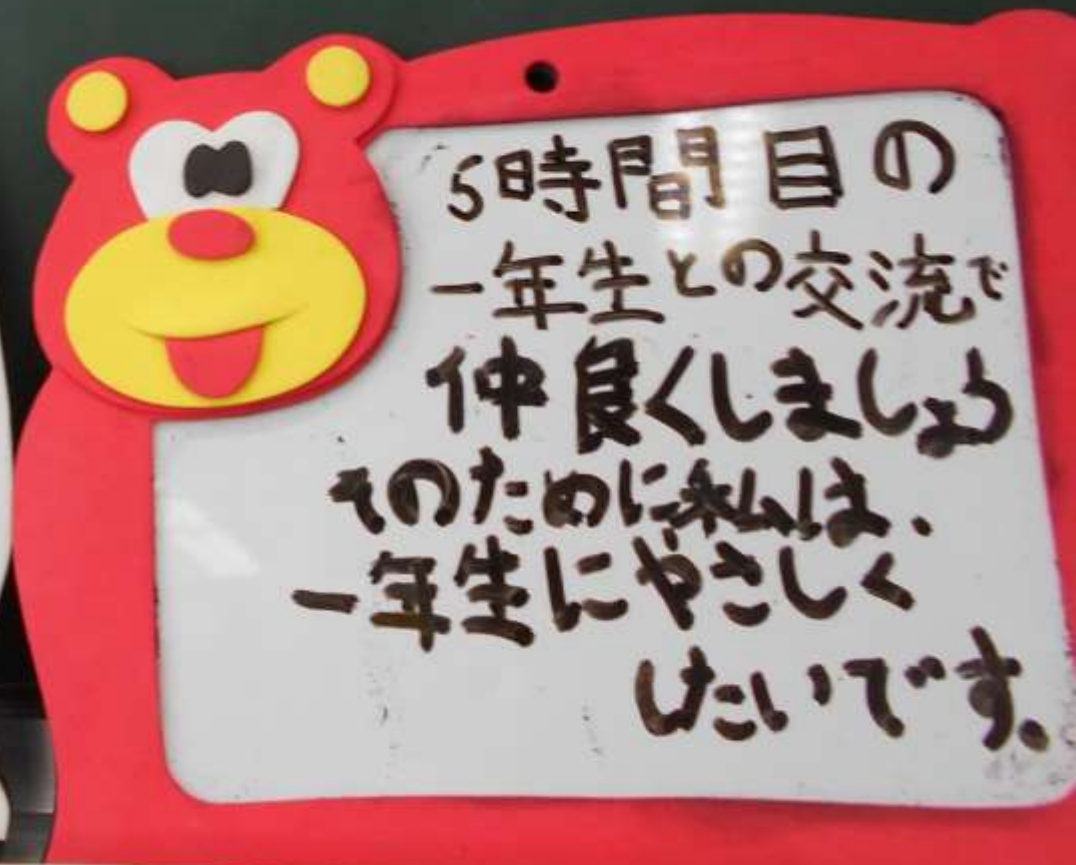 5時間目の
一年生との交流で
仲良くしましょう
そのために私は、
一年生にやさしく
したいです。